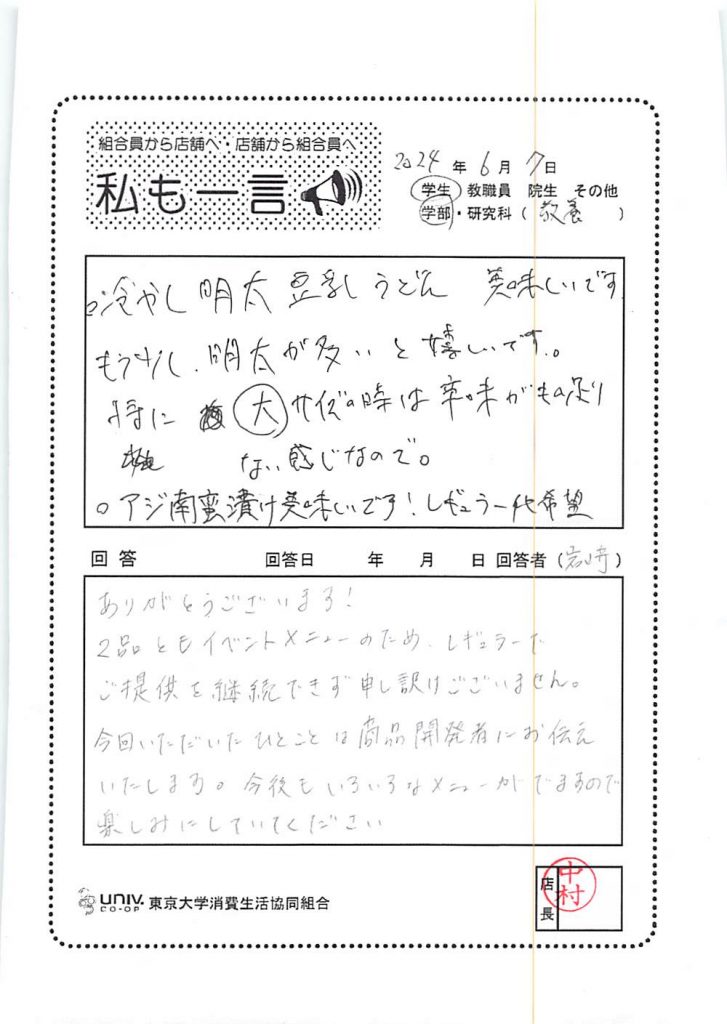 組合員から店舗へ・店舗から組合員へ
私も一言
2024年6月7日
学生 教職員 院生 その他
学部・研究科(教養)
○冷やし明太豆乳うどん 美味しいです
もう少し、明太が多いと嬉しいです。
特に 大サイズの時は辛味がもの足り
ない感じなので。
○アジ南蛮漬け美味しいです!レギュラー化希望
回答 回答日 年 月 日 回答者(岩崎)
ありがとうございます!
2品ともイベントメニューのため、レギュラーで
ご提供を継続できず申し訳けございません。
今回いただいたひとことは商品開発者にお伝え
いたします。今後もいろいろなメニューがでますので
楽しみにしていてください
UNIV. CO-OP 東京大学消費生活協同組合
店長 中村